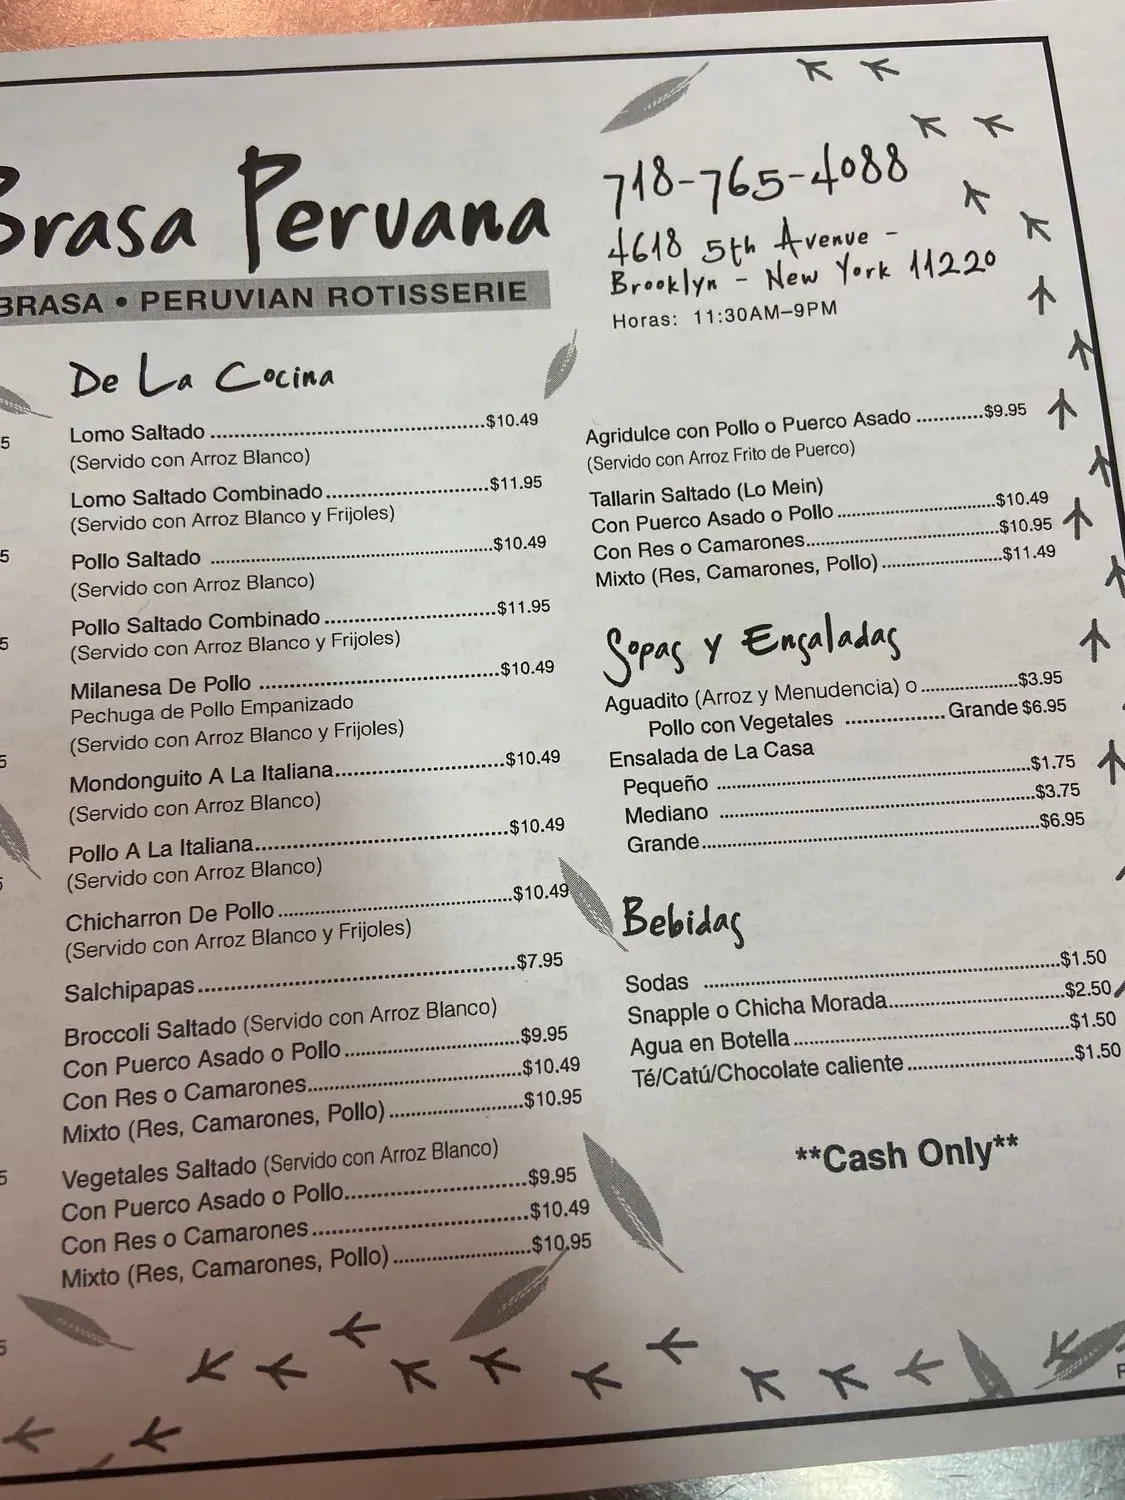 Brasa Peruana
BRASA • PERUVIAN ROTISSERIE
718-765-4088
4618 5th Avenue -
Brooklyn - New York 11220
Horas: 11:30AM–9PM
De La Cocina
Lomo Saltado ........ $10.49
(Servido con Arroz Blanco)
Lomo Saltado Combinado ........ $11.95
(Servido con Arroz Blanco y Frijoles)
Pollo Saltado ........ $10.49
(Servido con Arroz Blanco)
Pollo Saltado Combinado ........ $11.95
(Servido con Arroz Blanco y Frijoles)
Milanesa De Pollo ........ $10.49
Pechuga de Pollo Empanizado
(Servido con Arroz Blanco y Frijoles)
Mondonguito A La Italiana ........ $10.49
(Servido con Arroz Blanco)
Pollo A La Italiana ........ $10.49
(Servido con Arroz Blanco)
Chicharron De Pollo ........ $10.49
(Servido con Arroz Blanco y Frijoles)
Salchipapas ........ $7.95
Broccoli Saltado (Servido con Arroz Blanco)
Con Puerco Asado o Pollo ........ $9.95
Con Res o Camarones ........ $10.49
Mixto (Res, Camarones, Pollo) ........ $10.95
Vegetales Saltado (Servido con Arroz Blanco)
Con Puerco Asado o Pollo ........ $9.95
Con Res o Camarones ........ $10.49
Mixto (Res, Camarones, Pollo) ........ $10.95
Agridulce con Pollo o Puerco Asado ........ $9.95
(Servido con Arroz Frito de Puerco)
Tallarin Saltado (Lo Mein)
Con Puerco Asado o Pollo ........ $10.49
Con Res o Camarones ........ $10.95
Mixto (Res, Camarones, Pollo) ........ $11.49
Sopas y Ensaladas
Aguadito (Arroz y Menudencia) o ........ $3.95
Pollo con Vegetales ........ Grande $6.95
Ensalada de La Casa
Pequeño ........ $1.75
Mediano ........ $3.75
Grande ........ $6.95
Bebidas
Sodas ........ $1.50
Snapple o Chicha Morada ........ $2.50
Agua en Botella ........ $1.50
Té/Catú/Chocolate caliente ........ $1.50
**Cash Only**